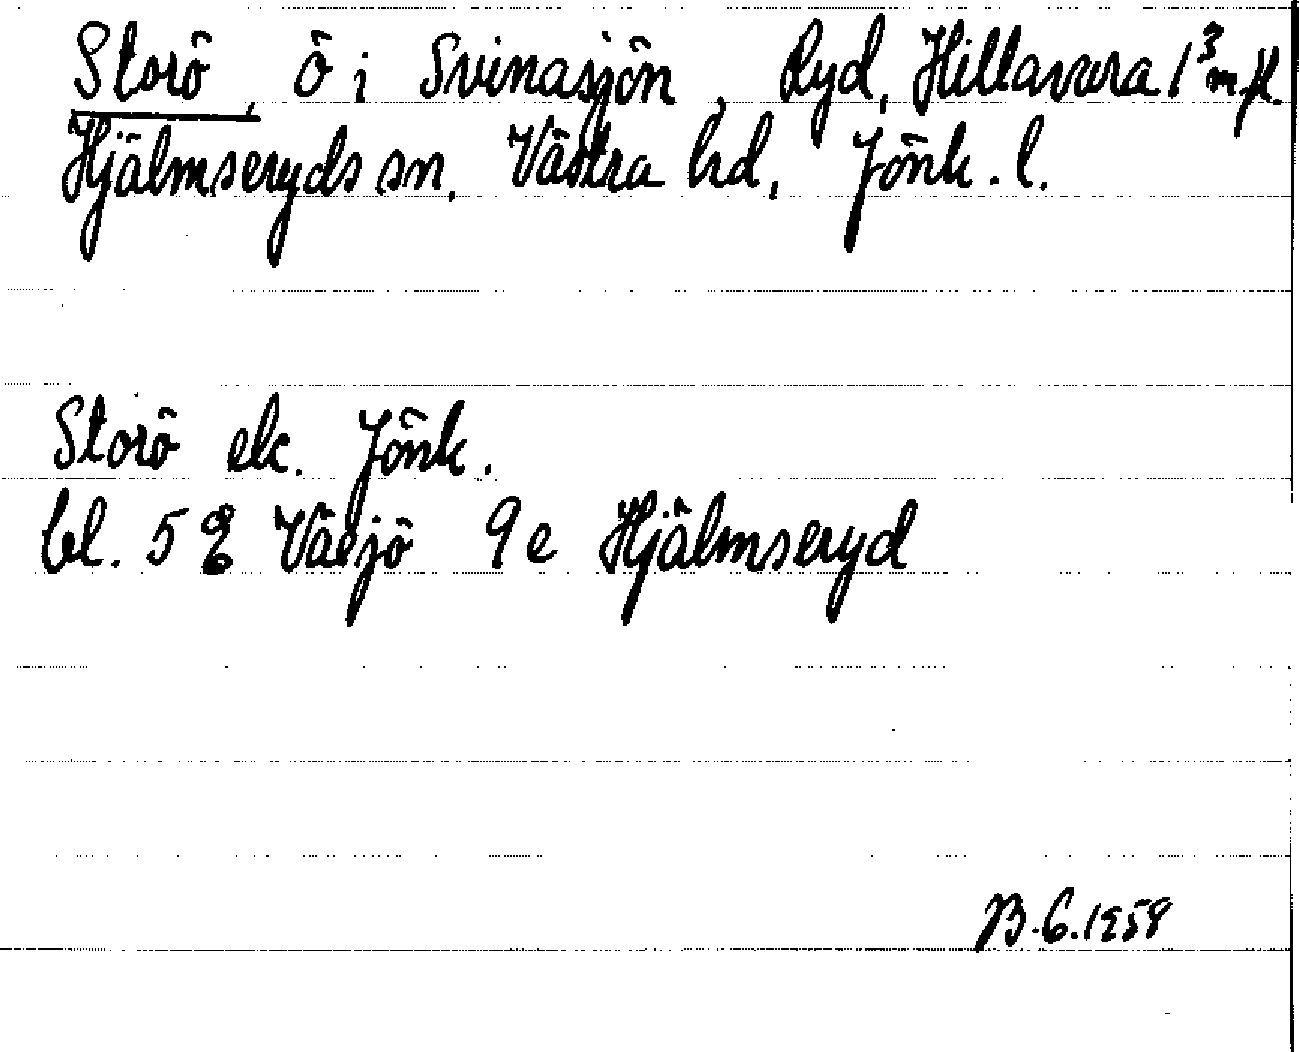 Storö, ö i Svinasjön, Ryd, Hillavara 1³ m.fl.
Hjälmseryds sn, Västra hd, Jönk. l.
Storö ek. Jönk.
bl. 5 E Växjö 9e Hjälmseryd
B.G. 1958